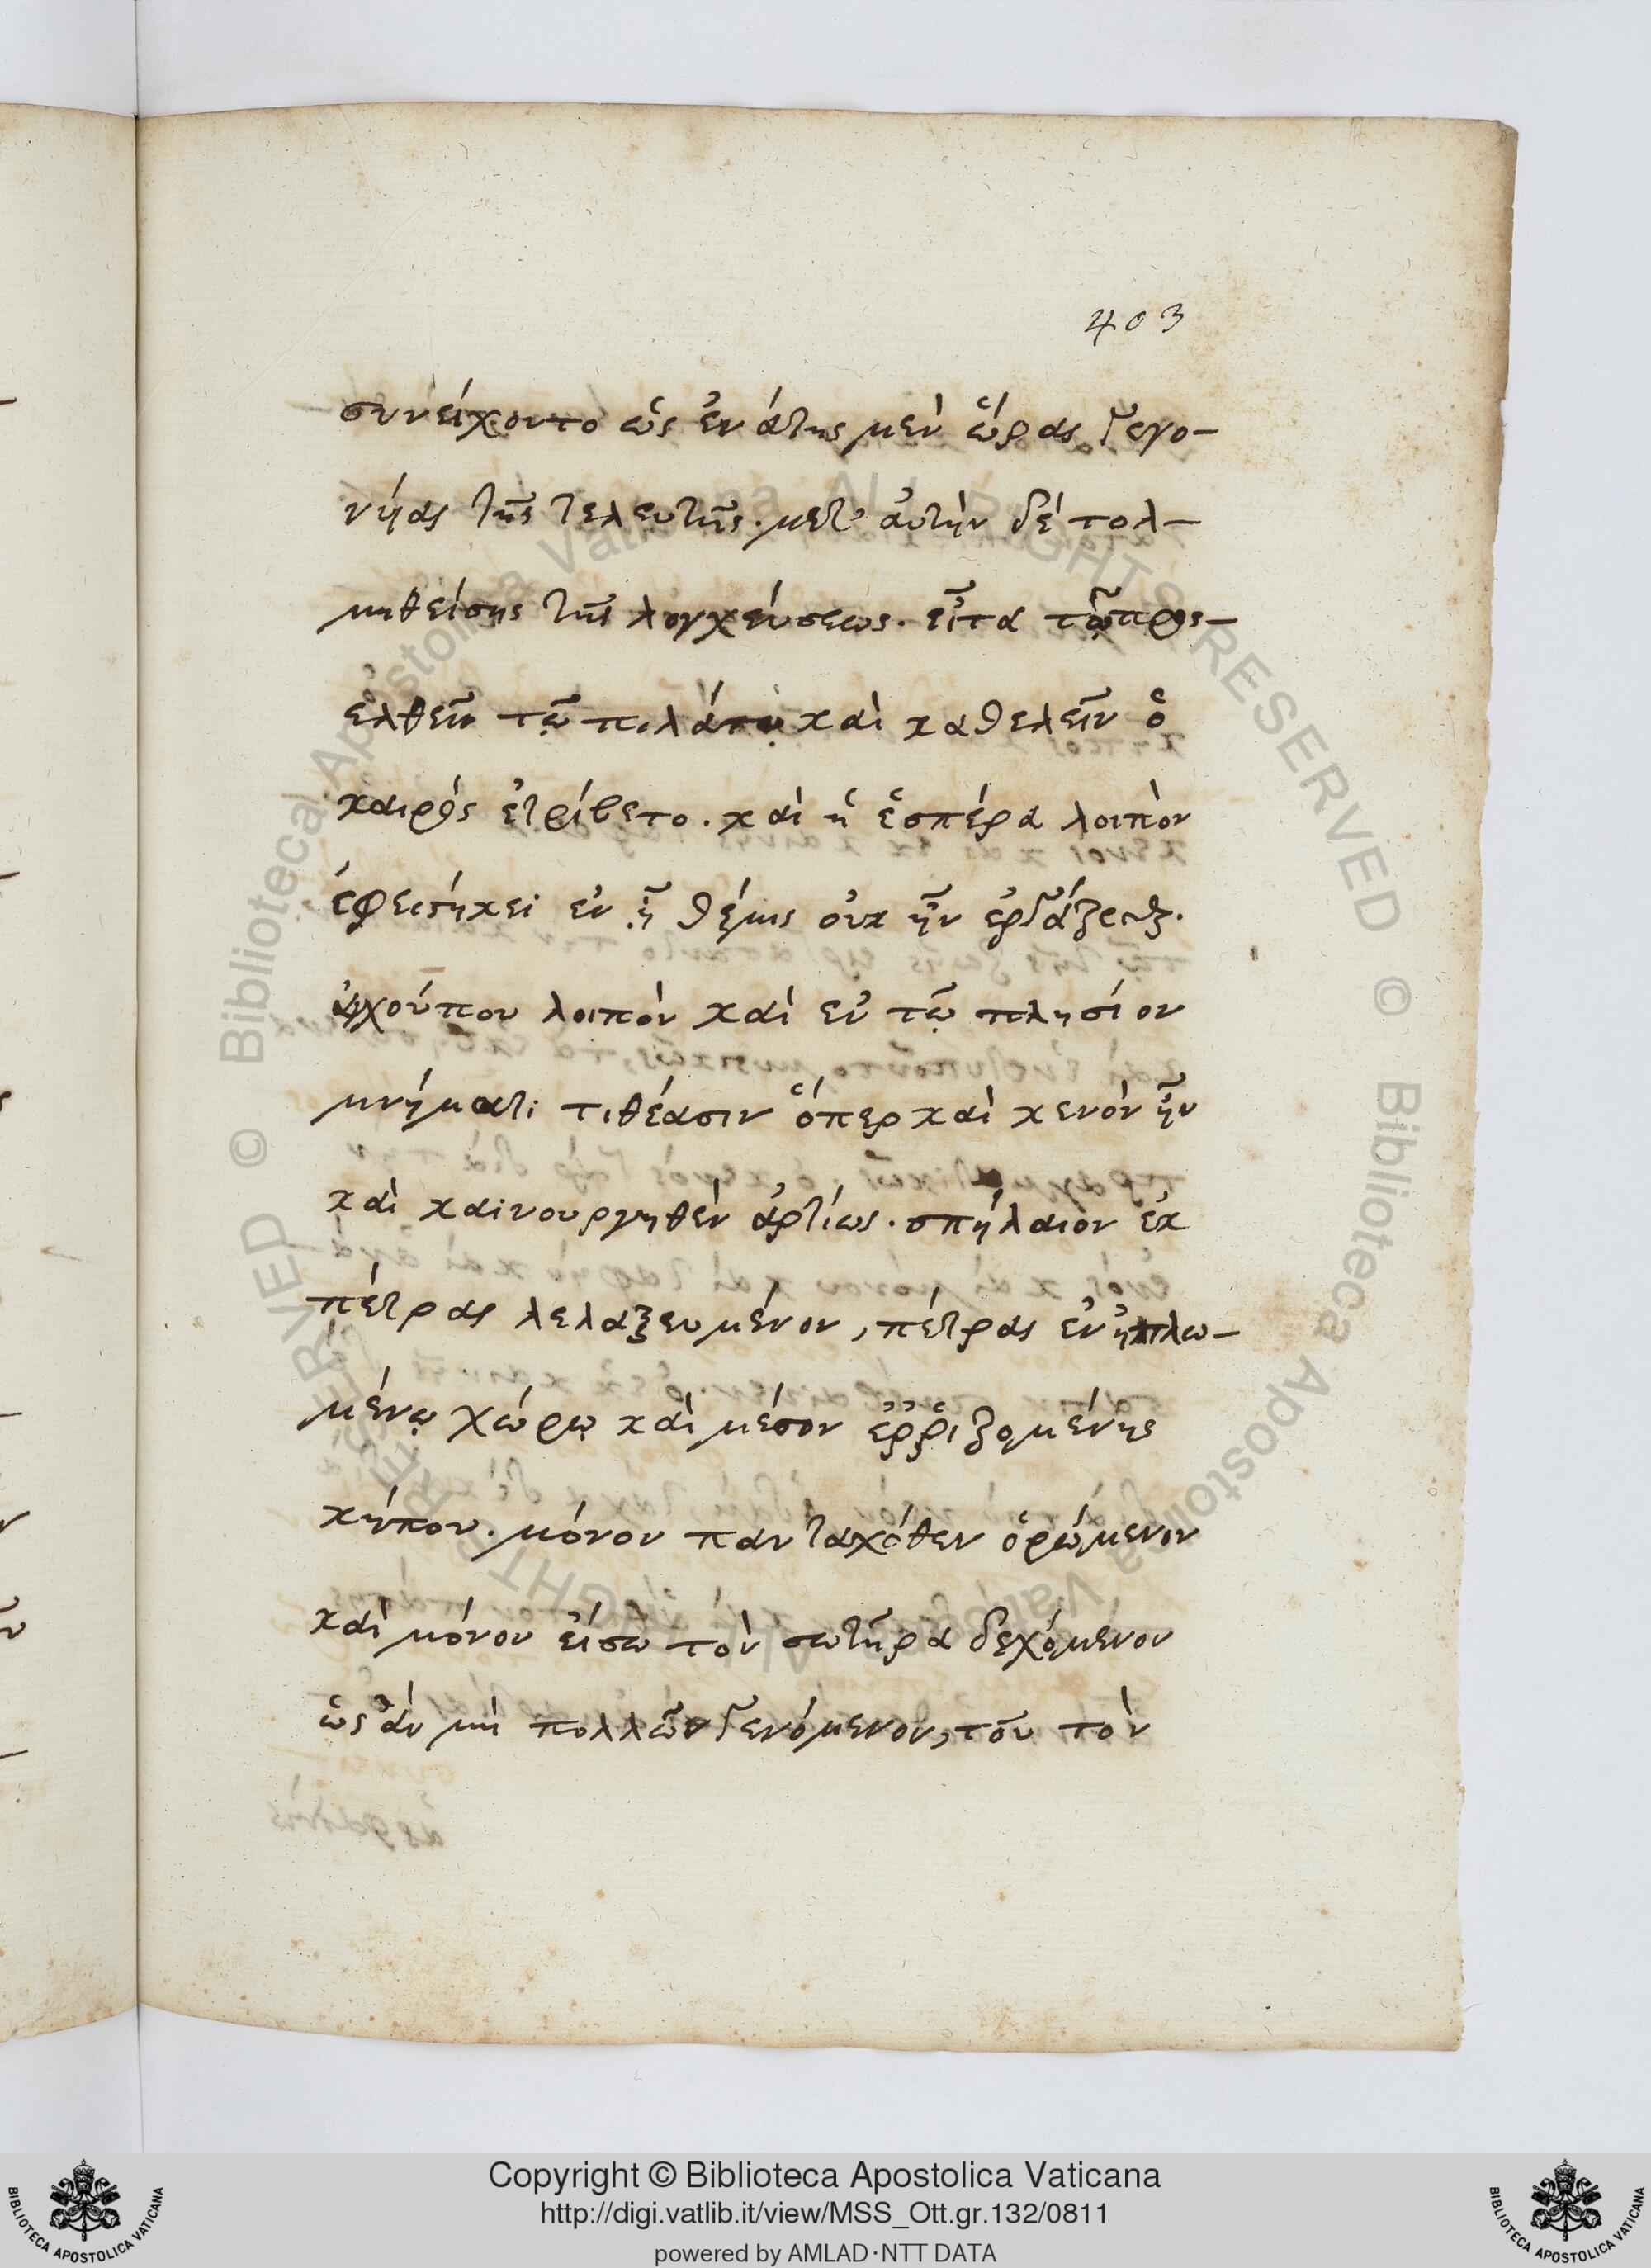 403
συνείχοντο ὡς ἐνάτης μὲν ὥρας γεγο-
νυίας τῆς τελευτῆς. μετ' αὐτὴν δὲ τολ-
μηθείσης τῆς λογχεύσεως. εἶτα τῷ προς-
ελθεῖν τῷ πιλάτῳ καὶ καθελεῖν ὁ
καιρὸς ἐτρίβετο. καὶ ἡ ἑσπέρα λοιπὸν
ἐφειστήκει ἐν ᾗ θέμις οὐκ ἦν ἐργάζεσθαι.
ἀγχούπου λοιπὸν καὶ ἐν τῷ πλησίον
μνήματι τιθέασιν ὅπερ καὶ κενὸν ἦν
καὶ καινουργηθὲν ἀρτίως. σπήλαιον ἐκ
πέτρας λελαξευμένον, πέτρας ἐν ἡπλω-
μένῳ χώρῳ καὶ μέσον ἐῤῥιζομένης
κήπου. μόνον πανταχόθεν ὁρώμενον
καὶ μόνον εἴσω τὸν σωτῆρα δεχόμενον
ὡς ἂν μὴ πολλῶν γενόμενον, τοῦ τὸν
Copyright © Biblioteca Apostolica Vaticana
http://digi.vatlib.it/view/MSS_Ott.gr.132/0811
powered by AMLAD·NTT DATA
BIBLIOTECA APOSTOLICA VATICANA
BIBLIOTECA APOSTOLICA VATICANA
© Biblioteca Apostolica Vaticana ALL RIGHTS RESERVED
© Biblioteca Apostolica Vaticana ALL RIGHTS RESERVED